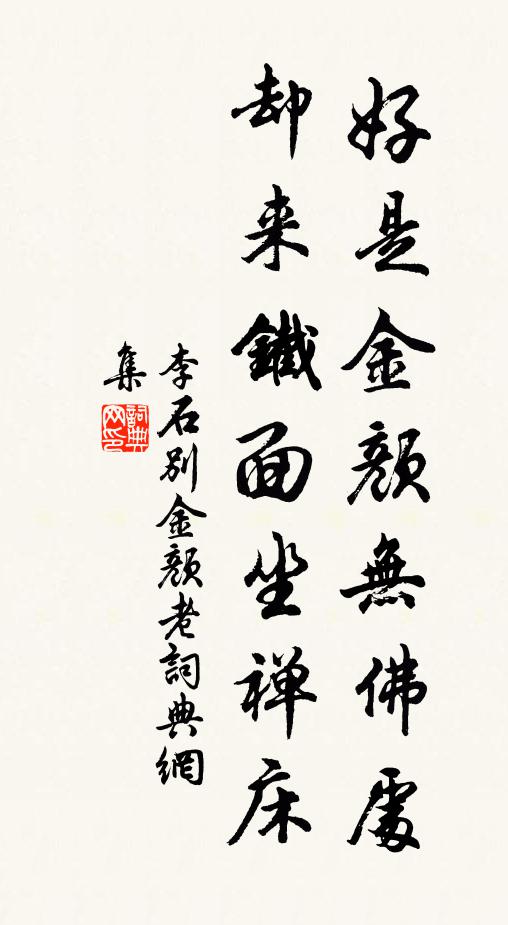 好是金顏無佛處
却来鐵面坐禅床
李石別金顏老詞典網
集
詞典网印